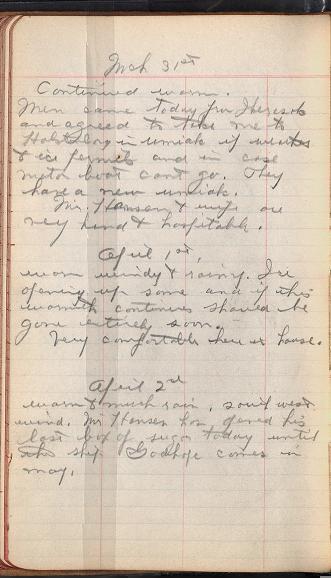 Mch 31st
Continued warm.
Men came today from
and agreed to take me to
Holstenborg in umiak if weather
& ice permit and in case
motor boat cant go. They
have a new umiak.
Mr. Hansen & wife are
very kind & hospitable.
April 1st,
warm windy & rainy. Ice
opening up some and if this
warmth continues should be
gone entirely soon.
Very comfortable here in house.
April 2nd
warm & much rain, south west
wind. Mr Hansen has opened his
last box of sugar today until
the ship Godhope comes in
may.